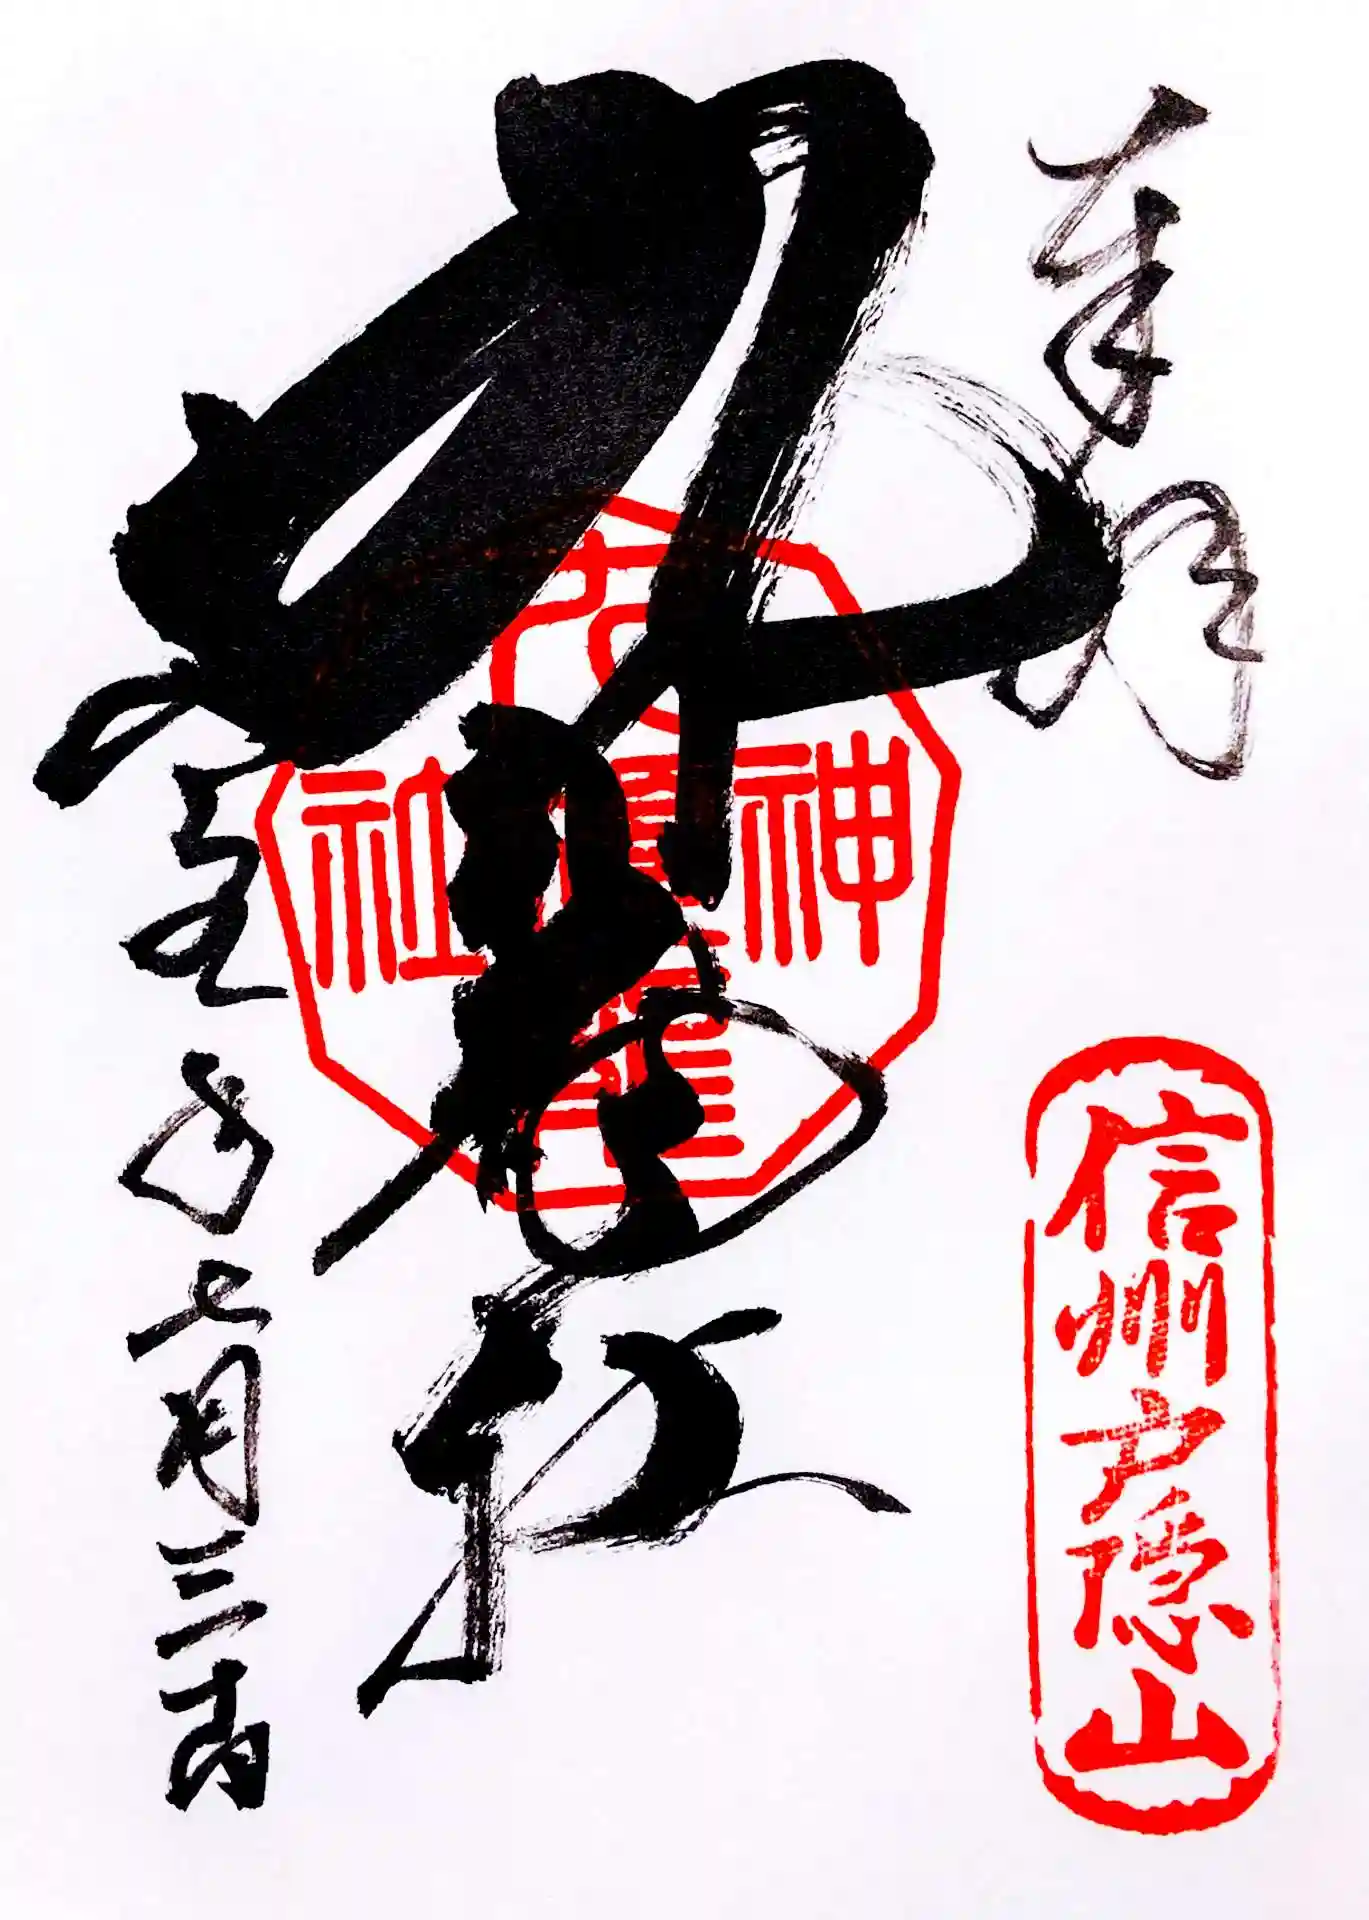 奉拝
信州戸隠山
九頭龍社
九頭龍
神社
年七月三十日